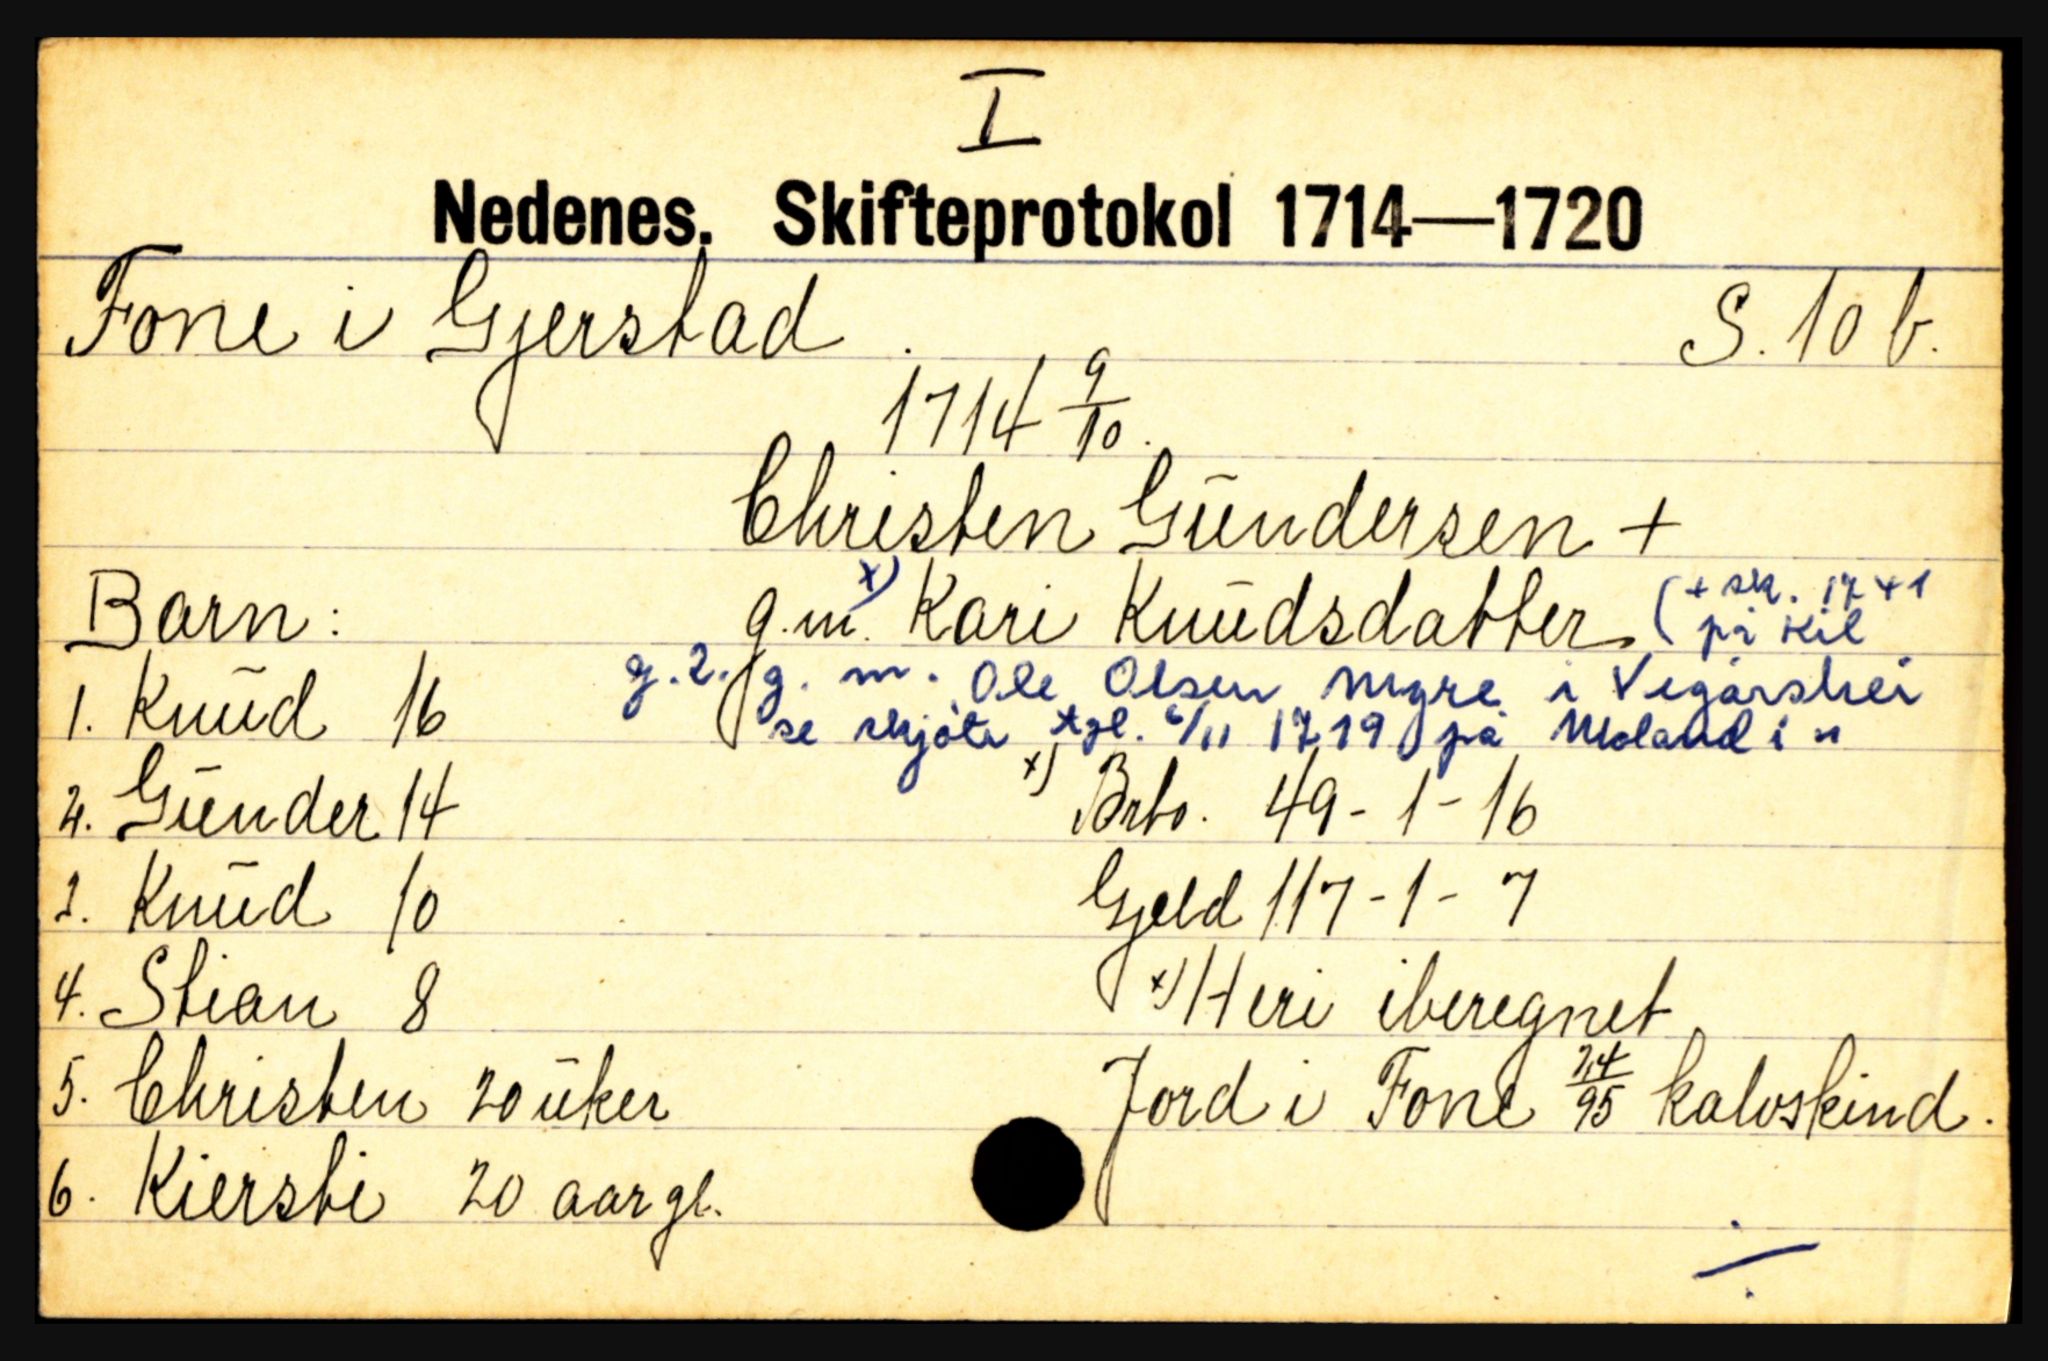 I
Nedenes. Skifteprotokol 1714—1720
Fone i Gjerstad. S. 10 b.
1714 9/10.
Christen Gūndersen +
Barn: g.m. x) Kari Knūdsdatter (+ sk. 1741 på Kil
g. 2. g. m. Ole Olsen Myre i Vegårshei
1. Knūd 16 se skjöte tgl. 6/11 1719 på Moland i "
2. Gūnder 14 x) Brto. 49-1-16
3. Knūd 10 Gjeld 117-1-7
4. Stian 8 x) Heri iberegnet
5. Christen 20 ūker Jord i Fone 24/95 kalvskind.
6. Kiersti 20 aar gl.